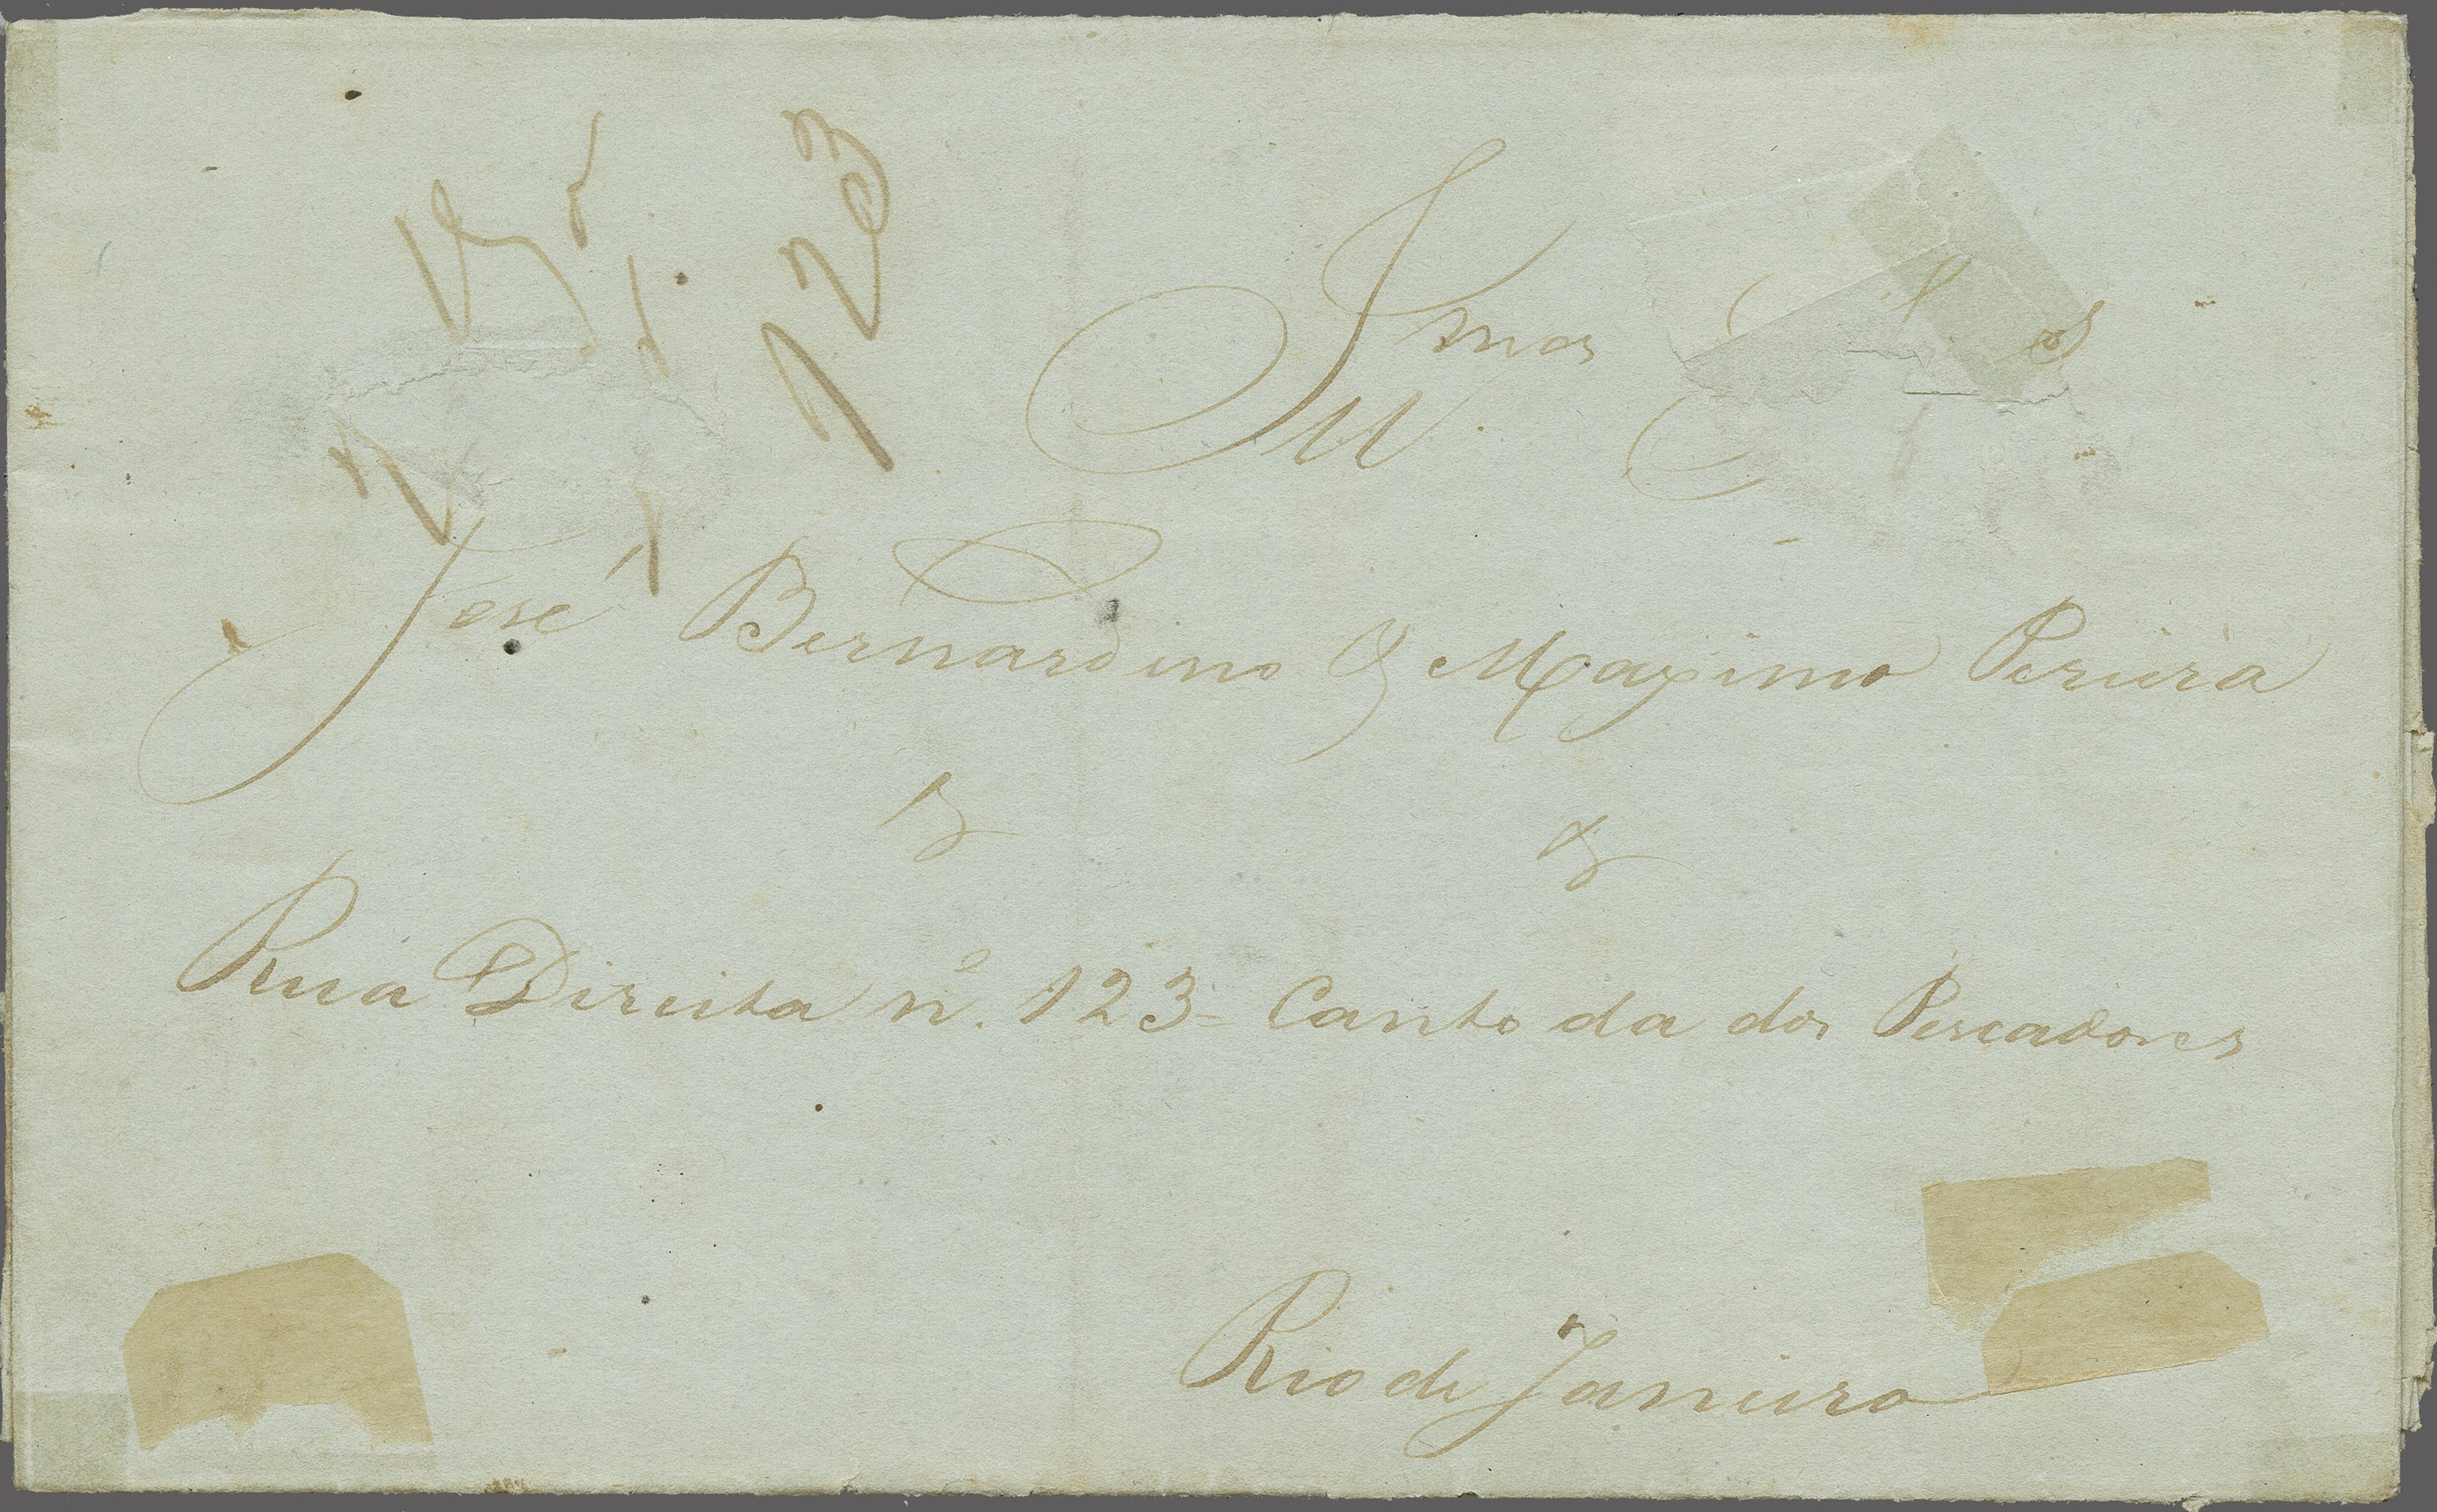 123
Illmos S
José Bernardino & Maximo Pereira
Rua Direita nº. 123 = Canto da dos Pescadores
Rio de Janeiro